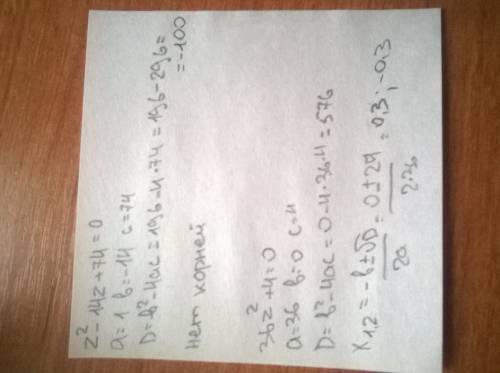 z² - 14z + 74 = 0
a = 1 b = -14 c = 74
D = b² - 4ac = 196 - 4·74 = 196 - 296 =
= -100
нет корней
36z² + 4 = 0
a = 36 b = 0 c = 4
D = b² - 4ac = 0 - 4·36·4 = 576
x₁,₂ = -b ± √D / 2a = 0 ± 24 / 2·36 = 0,3 ; -0,3